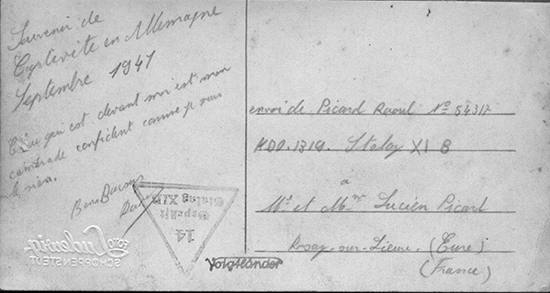 Souvenir de
Captivité en Allemagne
Septembre 1941
Celui qui est devant moi est mon
camarade confident comme je suis
le sien.
Bons Baisers
14
Geprüft
Stalag XIB
SCHÖPPENSTEDT
Voigtländer
envoi de Picard Raoul No 54317
KDO.1319. Stalag XI B
à
Mr et Mme Lucien Picard
Rosay-sur-Lieure (Eure)
(France)